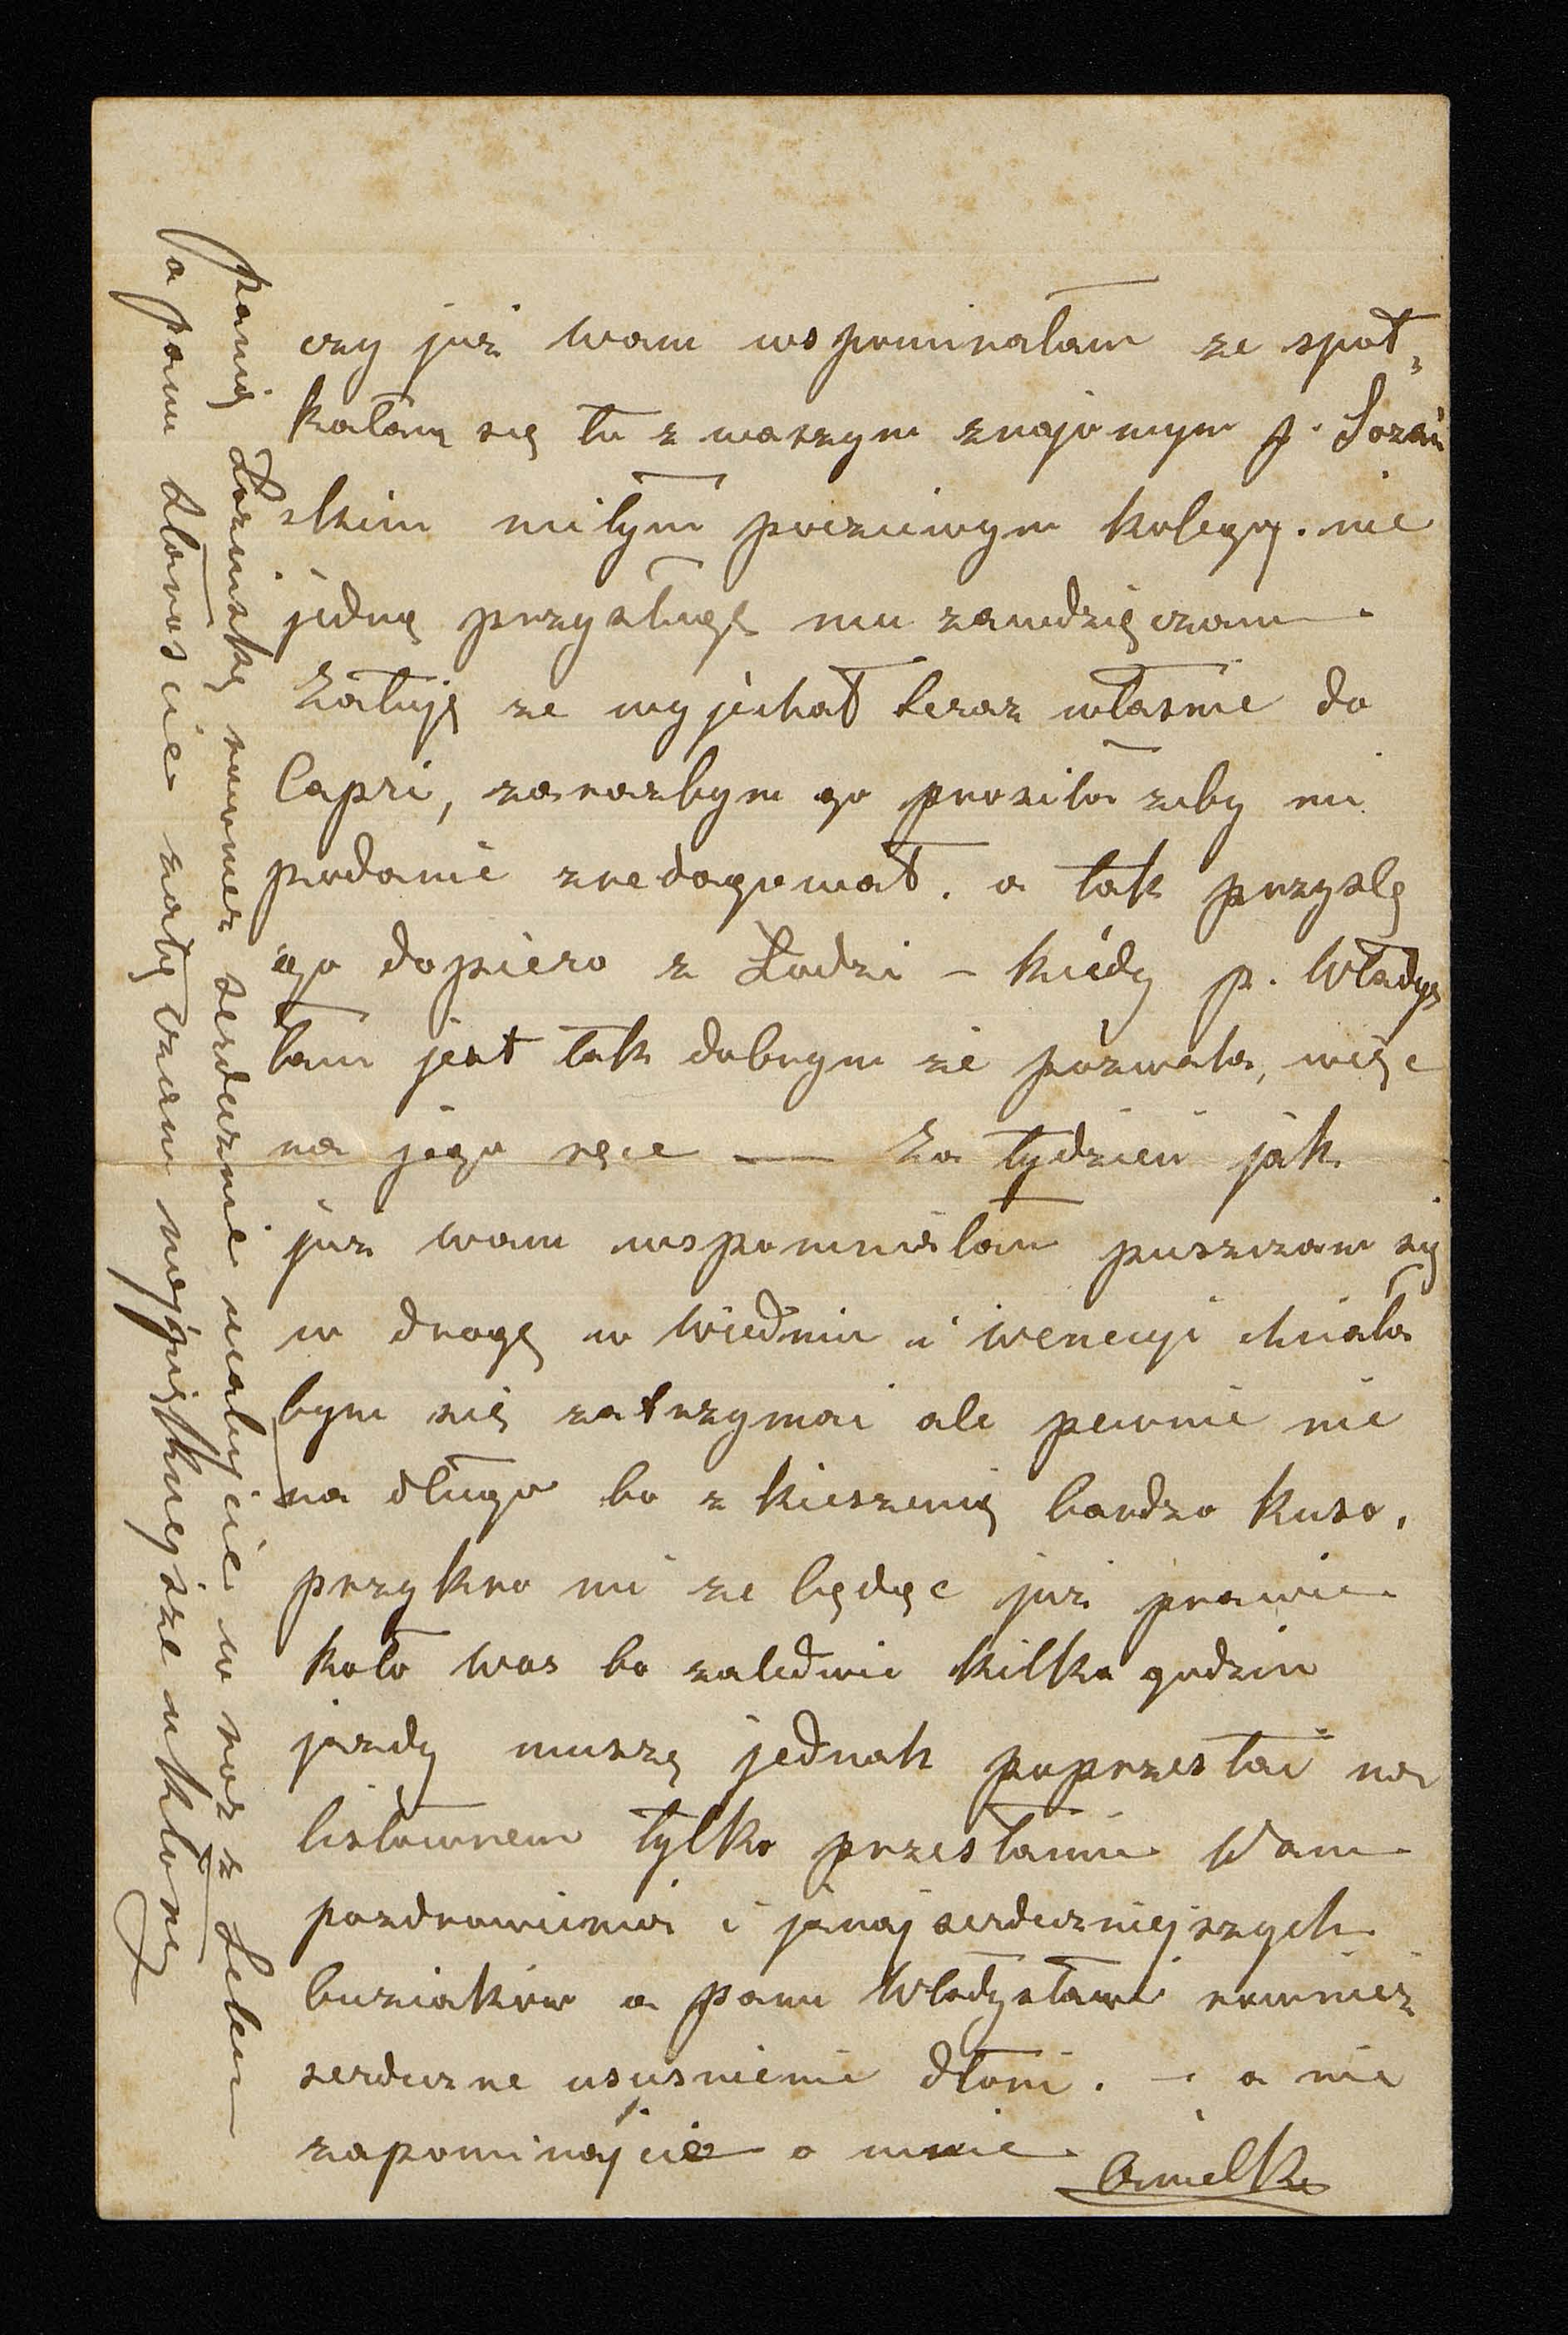 czy już wam wspominałam ze spot„
kałam się tu z waszym znajomym p. Sozań
skim miłym poczciwym kolegą. nie
jedną przysługę mu zawdzięczam
Załuję ze wyjechał teraz własnie do
Capri, zarazbym go prosiła zeby mi
podanie zredagował. a tak przyslę
go dopiero z Łodzi – kiedy p. Władys
ław jest tak dobrym ze pozwala, więc
na jego ręce — Za tydzień jak
juz wam wspomniałam puszczam się
w drogę w Wiedniu i Wenecyi chciała
bym się zatrzymać ale pewnie nie
na długo bo z kieszenią bardzo kuso.
przykro mi ze będąc juz prawie
koło was bo zaledwie kilka godzin
jazdy muszę jednak poprzestać na
listownem tylko przesłaniu Wam
pozdrowienia i jnajserdeczniejszych
buziaków a panu Władysławi rownież
serdeczne uscisnienie dłoni. – a nie
zapominajcie o mnie
Amelka
panią Łozińską rowniez serdecznie ucałujcie w raz z Lelem
a panu Staroscie załączam najpiękniejsze ukłony